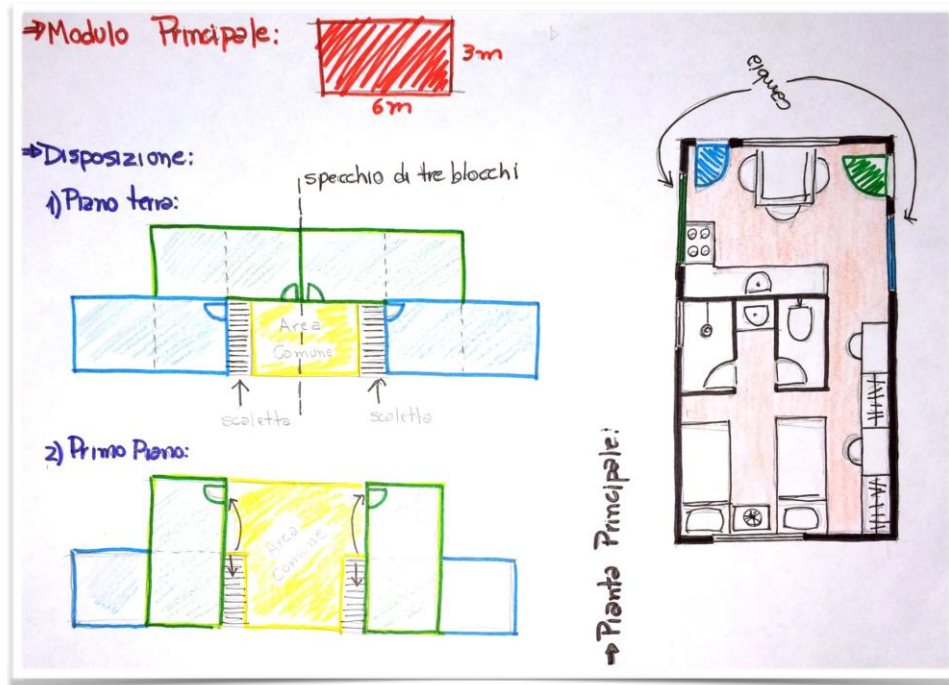 ⇒Modulo Principale:
3m
6m
⇒Disposizione:
1) Piano terra:
specchio di tre blocchi
Area
Comune
scaletta scaletta
2) Primo Piano:
Area
Comune
cambia
→Pianta Principale: